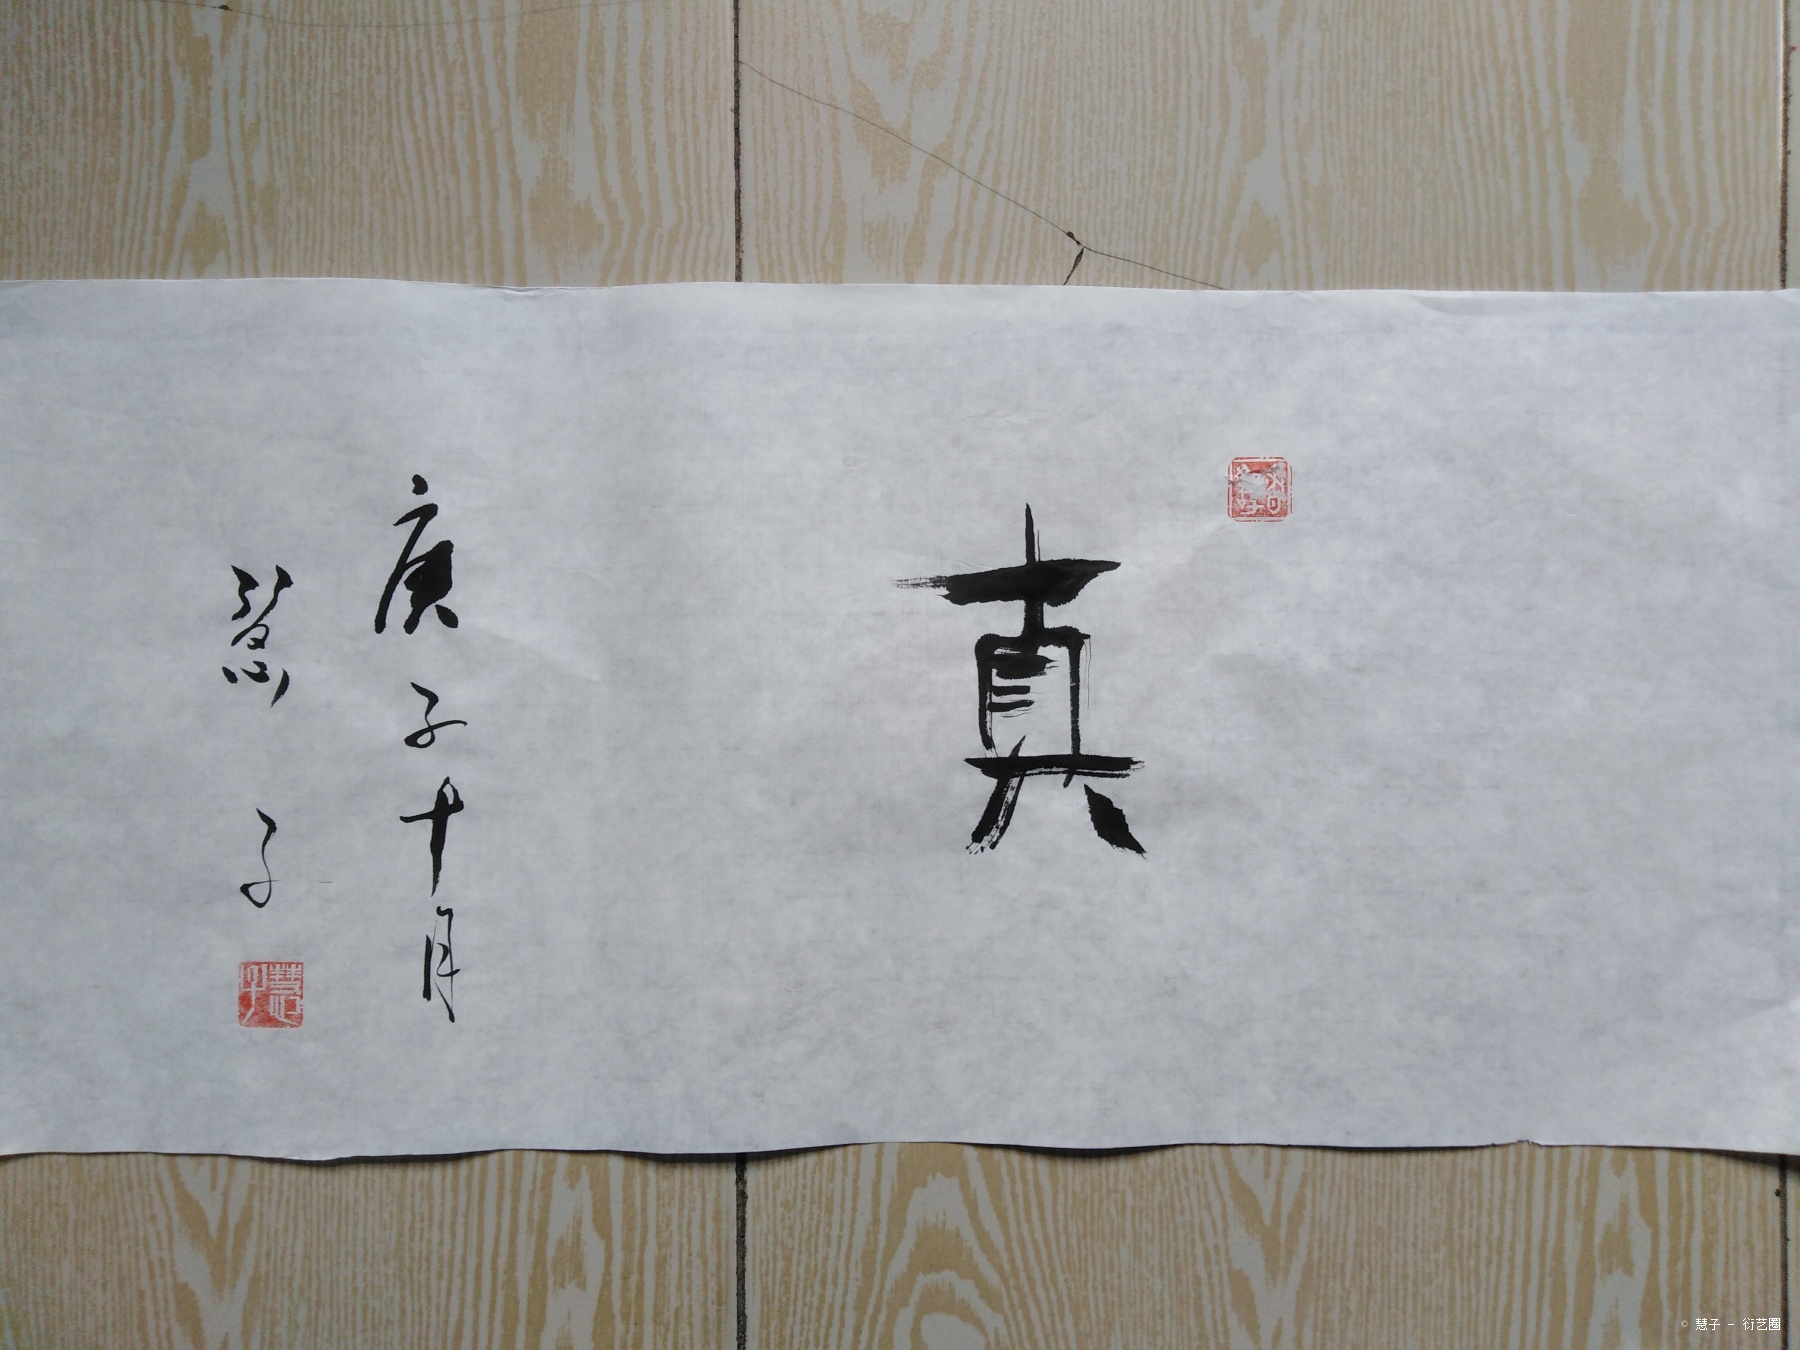 真
庚子十月
慧子
慧子
© 慧子 - 衍艺圈